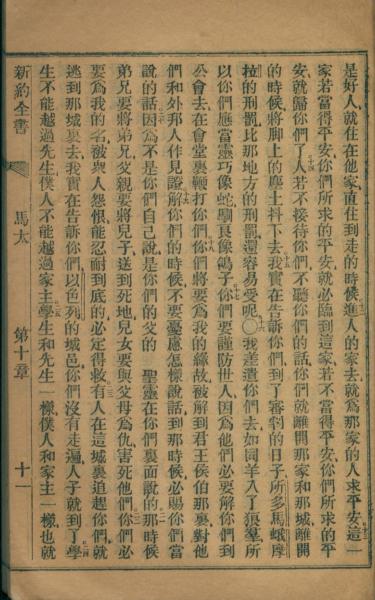 是好人、就住在他家、直住到走的時候、進人的家去、就爲那家的人求平安、這一
家若當得平安、你們所求的平安、就必臨到這家、若不當得平安、你們所求的平
安、就歸你們了、人若不接待你們、不聽你們的話、你們就離開那家和那城、離開
的時候、將脚上的塵土抖下去、我實在告訴你們、到了審判的日子、所多馬蛾摩
拉的刑罰、比那地方的刑罰、還容易受呢〇我差遣你們去、如同羊入了狼羣、所
以你們應當靈巧像蛇、馴良像鴿子、你們要謹防世人、因爲他們必要解你們到
公會去、在會堂裏鞭打你們、你們將要爲我的緣故、被解到君王侯伯那裏、對他
們和外邦人作見證、解你們的時候、不要憂慮怎樣說話、到那時候、必賜你們當
說的話、因爲不是你們自己說、是你們的父的 聖靈在你們裏面說的、那時候
弟兄要將弟兄、父親要將兒子、送到死地、兒女要與父母爲仇、害死他們、你們必
要爲我的名、被衆人怨恨、能忍耐到底的、必定得救、有人在這城裏追趕你們、就
逃到那城裏去、我實在告訴你們、以色列的城邑、你們沒有走遍、人子就到了、學
生不能越過先生、僕人不能越過家主、學生和先生一樣、僕人和家主一樣、也就
新約全書 馬太 第十章 十一